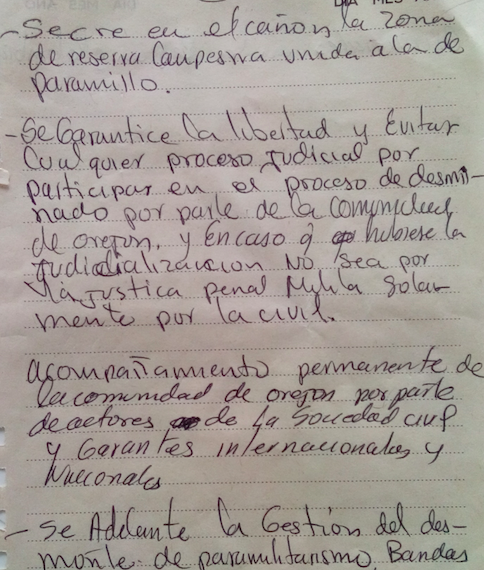 DIA MES AÑO
- Secre en el cañon, la zona
de reserva Campesina unida a la de
paramillo.
- Se Garantice la libertad y Evitar
Cualquier proceso Judicial por
participar en el proceso de desmi-
nado por parte de la comunidad
de orejon, y En caso q hubiese la
Judicialización No sea por
la justica penal Milita Solar
mente por la civil.
acompañamiento permanente de
la comunidad de orejon por parte
de actores de la Sociedad civil
y Garantes internacionales y
Nacionales
- Se Adelante la Gestión del des-
monte de paramilitarismo, Bandas